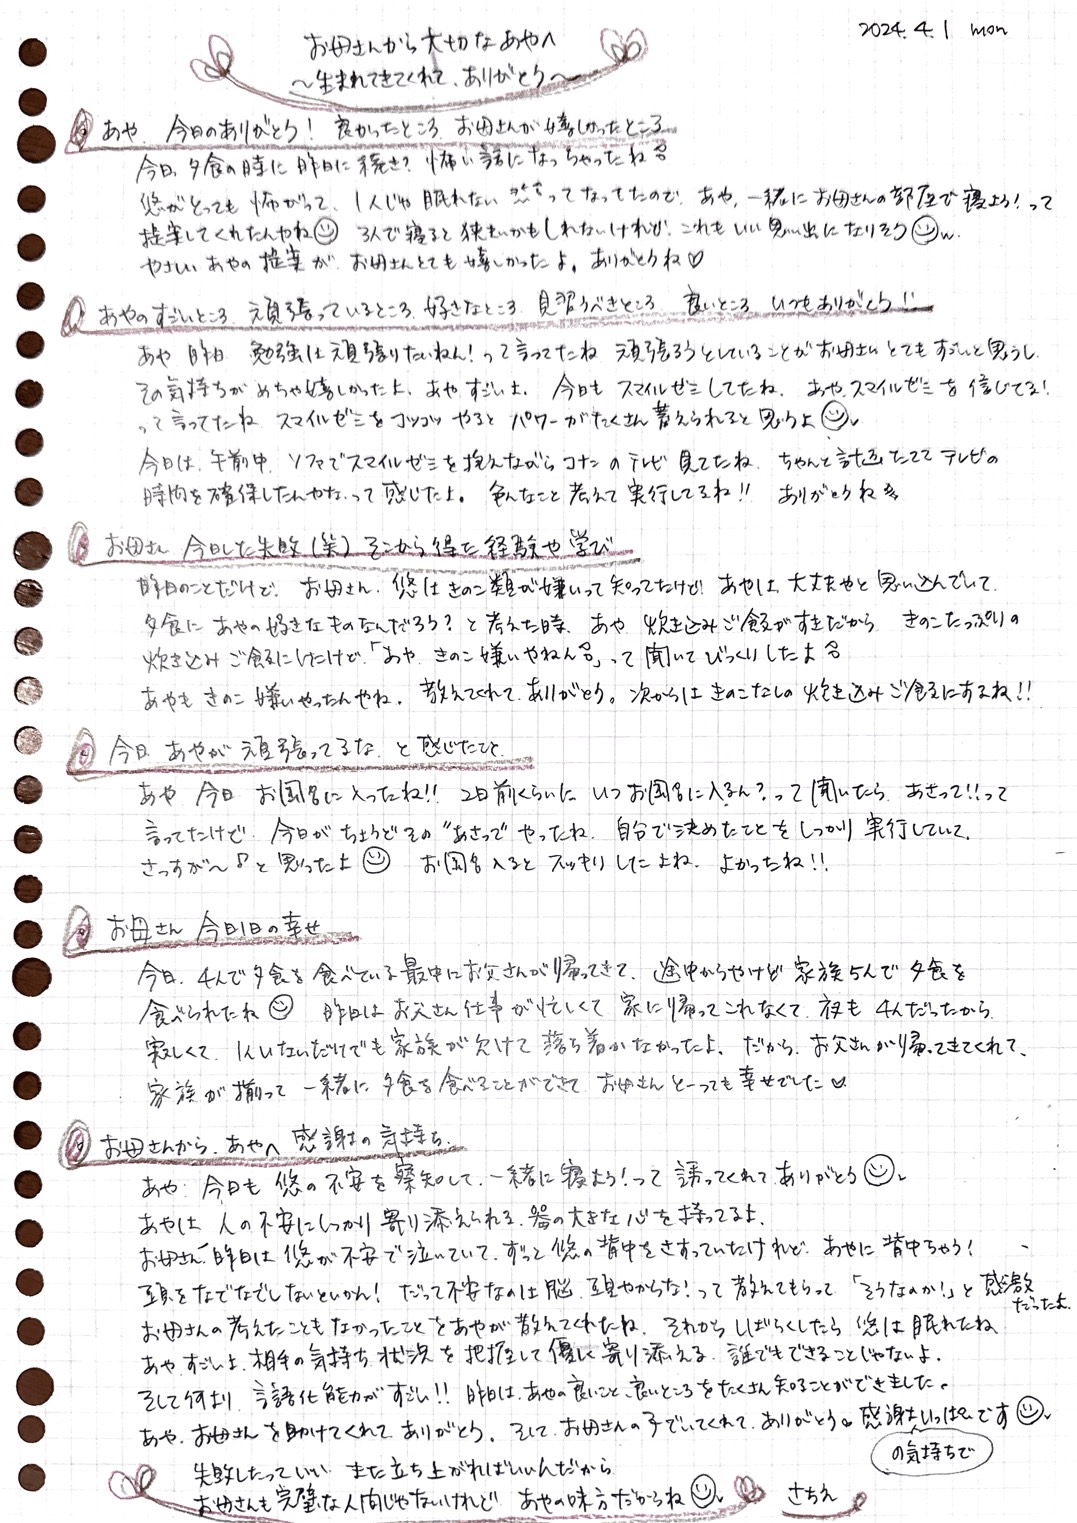 2024.4.1 mon
お母さんから大切なあやへ
～生まれてきてくれて、ありがとう～
あや、今日のありがとう！ 良かったところ、お母さんが嬉しかったところ
今日、夕食の時に昨日に続き？怖い話になっちゃったね
悠がとっても怖がって、1人じゃ眠れないってなってたので、あや、一緒にお母さんの部屋で寝よう！って
提案してくれたんやね 3人で寝ると狭いかもしれないけれど、これもいい思い出になりそうw
やさしいあやの提案が、お母さんとても嬉しかったよ。ありがとうね♡
あやのすごいところ、頑張っているところ、好きなところ、見習うべきところ、良いところ、いつもありがとう!!
あや 昨日、勉強は頑張りたいねん！って言ってたね 頑張ろうとしていることがお母さんとてもすごいと思うし、
その気持ちがめちゃ嬉しかったよ、あやすごいよ。 今日もスマイルゼミしてたね、あや、スマイルゼミを信じてる！
って言ってたね スマイルゼミをコツコツやるとパワーがたくさん蓄えられると思うよ
今日は、午前中、ソファでスマイルゼミを抱えながらコナンのテレビ見てたね、ちゃんと計画たててテレビの
時間を確保したんやな、って感じたよ。色んなこと考えて実行してるね!! ありがとうね
お母さん 今日した失敗(笑)そこから得た経験や学び
昨日のことだけど、お母さん、悠はきのこ類が嫌いって知ってたけど、あやは大丈夫やと思い込んでいて、
夕食にあやの好きなものなんだろう？と考えた時、あや、炊き込みご飯がすきだから、きのこたっぷりの
炊き込みご飯にしたけど、「あや、きのこ嫌いやねん」って聞いてびっくりしたよ
あやもきのこ嫌いやったんやね。教えてくれて、ありがとう。次からはきのこなしの炊き込みご飯にするね!!
今日、あやが頑張ってるな、と感じたこと
あや 今日、お風呂に入ったね!! 2日前くらいに、いつお風呂に入るん？って聞いたら、あさって!!って
言ってたけど、今日がちょうどその"あさって"やったね、自分で決めたことをしっかり実行していて、
さっすが～♪と思ったよ お風呂入るとスッキリしたよね、よかったね!!
お母さん 今日1日の幸せ
今日、4人で夕食を食べている最中にお父さんが帰ってきて、途中からやけど家族5人で夕食を
食べられたね 昨日はお父さん仕事が忙しくて家に帰ってこれなくて、夜も4人だったから、
寂しくて、1人いないだけでも家族が欠けて落ち着かなかったよ、だから、お父さんが帰ってきてくれて、
家族が揃って一緒に夕食を食べることができて、お母さんとーっても幸せでした♡
お母さんから、あやへ感謝の気持ち、
あや、今日も悠の不安を察知して、一緒に寝よう！って誘ってくれてありがとう
あやは、人の不安にしっかり寄り添えられる、器の大きな心を持ってるよ、
お母さん、昨日は悠が不安で泣いていて、ずっと悠の背中をさすっていたけれど、あやに背中ちゃう！
頭をなでなでしないといかん！だって不安なのは脳、頭やからな！って教えてもらって「そうなのか！」と感激だったよ、
お母さんの考えたこともなかったことをあやが教えてくれたね、それからしばらくしたら悠は眠れたね
あや、すごいよ、相手の気持ち、状況を把握して優しく寄り添える、誰でもできることじゃないよ。
そして何より、言語化能力がすごい!! 昨日は、あやの良いこと、良いところをたくさん知ることができました。
あや、お母さんを助けてくれてありがとう。そして、お母さんの子でいてくれて、ありがとう。感謝の気持ちでいっぱいです
失敗したっていい、また立ち上がればいいんだから
お母さんも完璧な人間じゃないけれど、あやの味方だからね さちえ